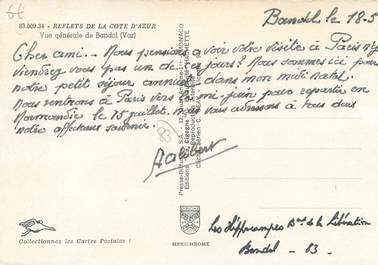 6€
83.009.34 - REFLETS DE LA COTE D'AZUR
Vue générale de Bandol (Var)
Bandol le 18-5
Cher ami - Nous pensions avoir votre visite à Paris
viendrez vous pas un de ces jours? Nous sommes ici pour
notre petit séjour annuel dans mon midi natal.
Nous rentrons à Paris vers mi-juin pour repartir en
Normandie le 15 juillet. Nous vous adressons à tous deux
notre affectueux souvenir.
Aalibert
Les Hippocampes Bd de la Libération
Bandol - 83.
Collectionnez les Cartes Postales !
MEXICHROME